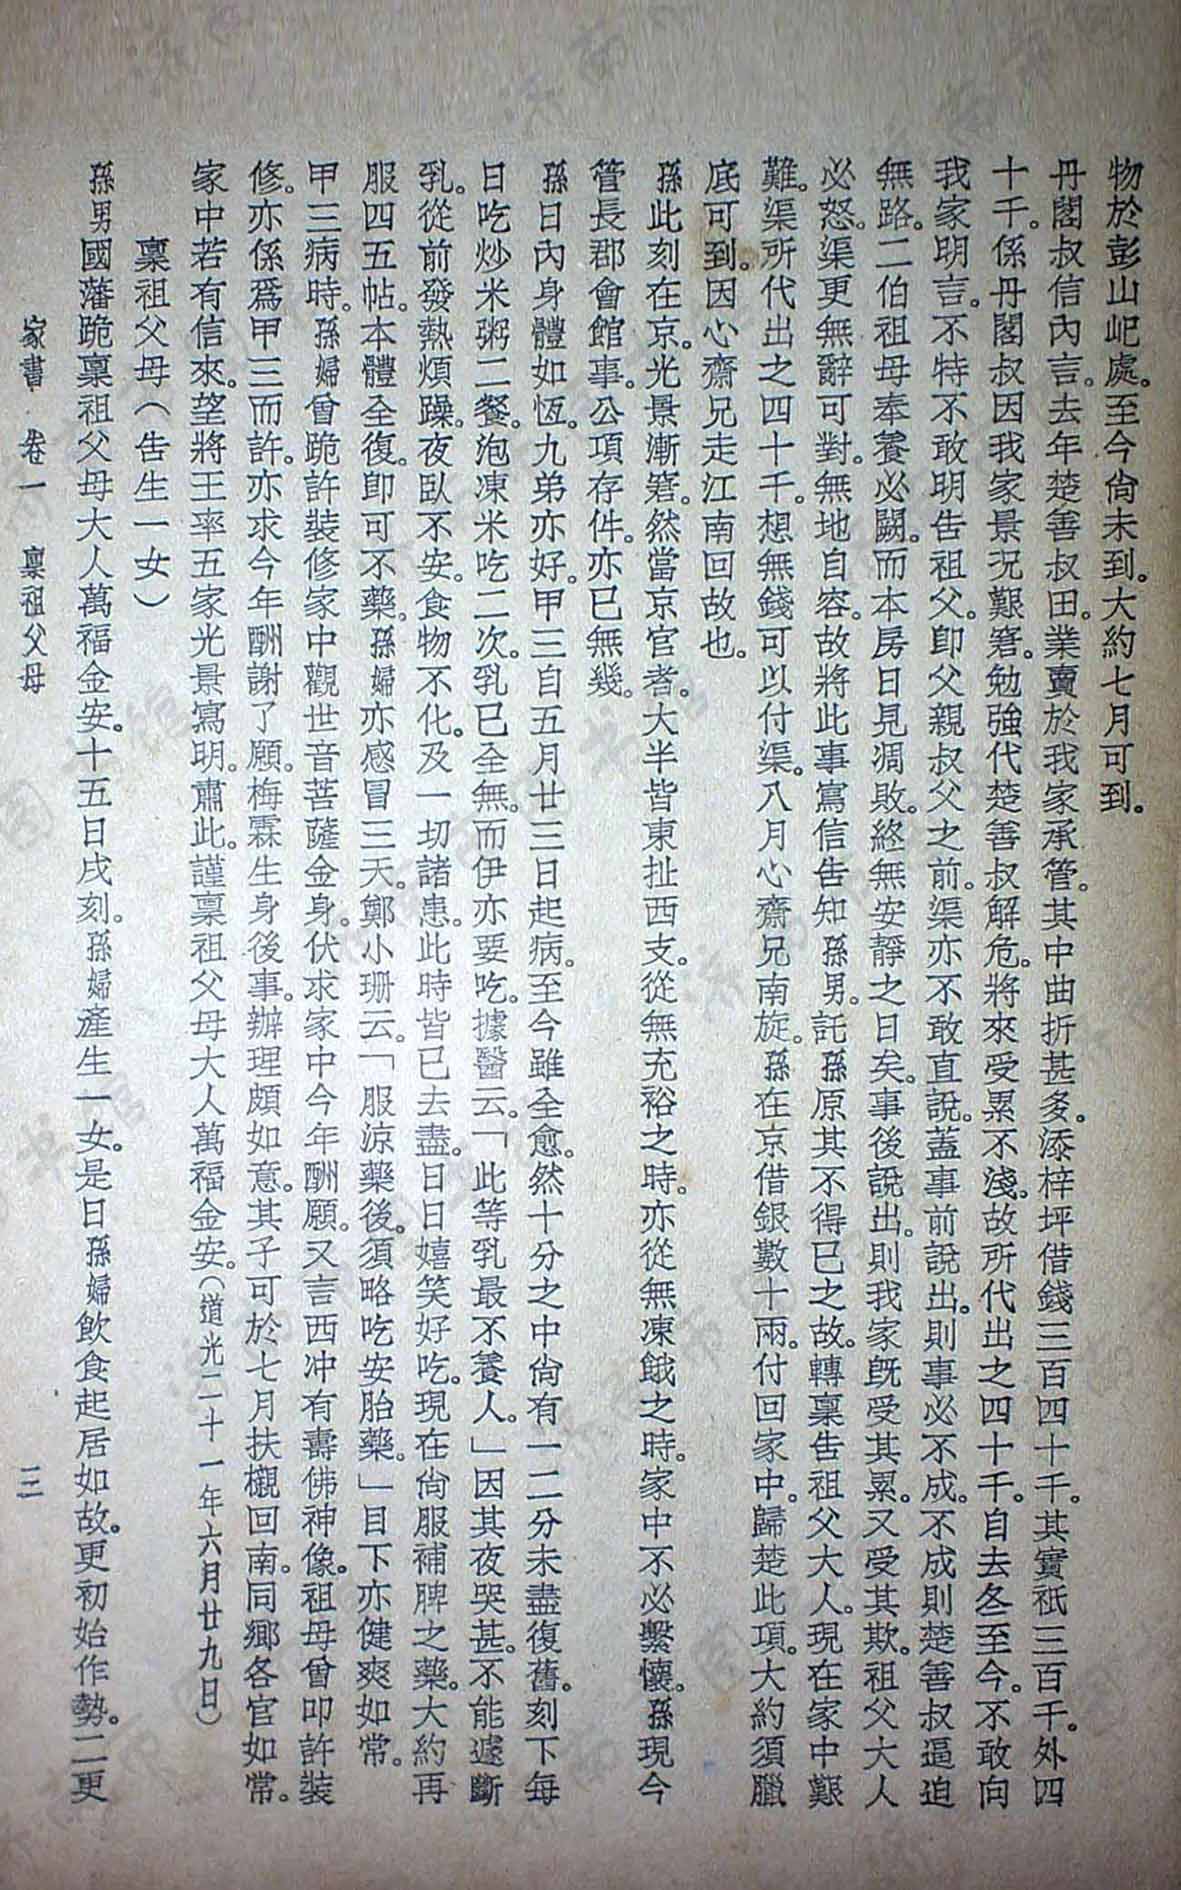 物於彭山屺處。至今尙未到。大約七月可到。
丹閣叔信內言。去年楚善叔田。業賣於我家承管。其中曲折甚多。添梓坪借錢三百四十千。其實祇三百千。外四
十千。係丹閣叔因我家景況艱窘。勉強代楚善叔解危。將來受累不淺。故所代出之四十千。自去冬至今。不敢向
我家明言。不特不敢明告祖父。卽父親叔父之前。渠亦不敢直說。蓋事前說出。則事必不成。不成則楚善叔逼迫
無路。二伯祖母奉養必闕。而本房日見凋敗。終無安靜之日矣。事後說出。則我家旣受其累。又受其欺。祖父大人
必怒。渠更無辭可對。無地自容。故將此事寫信告知孫男。託孫原其不得已之故。轉稟告祖父大人。現在家中艱
難。渠所代出之四十千。想無錢可以付渠。八月心齋兄南旋。孫在京借銀數十兩。付回家中。歸楚此項。大約須臘
底可到。因心齋兄走江南回故也。
孫此刻在京。光景漸窘。然當京官者。大半皆東扯西支。從無充裕之時。亦從無凍餓之時。家中不必繫懷。孫現今
管長郡會館事。公項存件。亦已無幾。
孫日內身體如恆。九弟亦好。甲三自五月廿三日起病。至今雖全愈。然十分之中尙有一二分未盡復舊。刻下每
日吃炒米粥二餐。泡凍米吃二次。乳已全無。而伊亦要吃。據醫云。「此等乳最不養人。」因其夜哭甚。不能遽斷
乳。從前發熱煩躁。夜臥不安。食物不化。及一切諸患。此時皆已去盡。日日嬉笑好吃。現在尙服補脾之藥。大約再
服四五帖。本體全復。卽可不藥。孫婦亦感冒三天。鄭小珊云。「服涼藥後。須略吃安胎藥。」目下亦健爽如常。
甲三病時。孫婦曾跪許裝修家中觀世音菩薩金身。伏求家中今年酬願。又言西冲有壽佛神像。祖母曾叩許裝
修。亦係爲甲三而許。亦求今年酬謝了願。梅霖生身後事。辦理頗如意。其子可於七月扶櫬回南。同鄉各官如常。
家中若有信來。望將王率五家光景寫明。肅此。謹稟祖父母大人萬福金安。（道光二十一年六月廿九日）
稟祖父母（告生一女）
孫男國藩跪稟祖父母大人萬福金安。十五日戌刻。孫婦產生一女。是日孫婦飲食起居如故。更初始作勢。二更
家書　卷一　稟祖父母　三